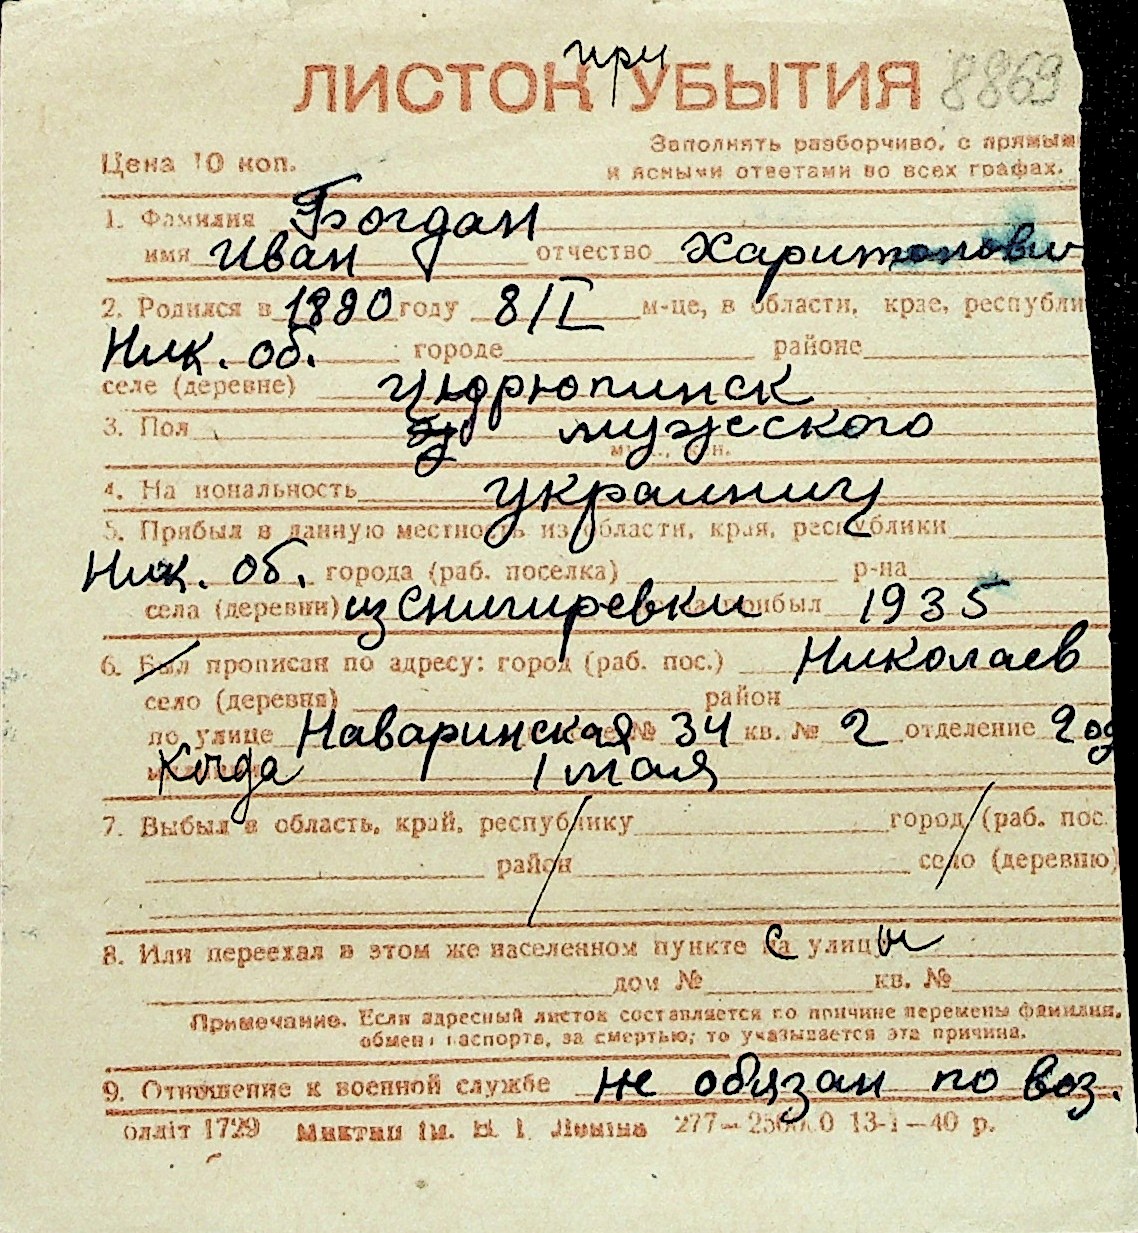 при
ЛИСТОК УБЫТИЯ 8869
Цена 10 коп.
Заполнять разборчиво, с прямым
и ясными ответами во всех графах.
1. Фамилия Богдан
имя Иван отчество Харитонови
2. Родился в 1890 году 8/I м-це, в области, крае, республи
Ник. об. городе районе
селе (деревне)
3. Пол мужеского
4. Национальность украиниц
5. Прибыл в данную местность из области, края, республики
Ник. об. города (раб. поселка) р-на
села (деревни) из Снигиревки прибыл 1935
6. Был прописан по адресу: город (раб. пос.) Николаев
село (деревня) район
по улице Наваринская № 34 кв. № 2 отделение 2 од
Когда 1 мая
7. Выбыл в область, край, республику город (раб. пос.
район село (деревню)
8. Или переехал в этом же населенном пункте с улицы
дом № кв. №
Примечание. Если адресный листок составляется по причине перемены фамилии,
обмена паспорта, за смертью; то указывается эта причина.
9. Отношение к военной службе не обязан по воз.
блліт 1729 277— 13-I—40 р.